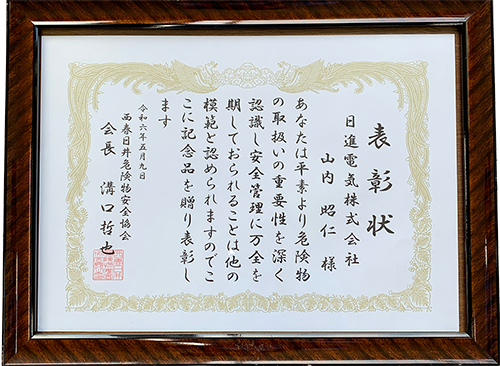 表彰状
日進電気株式会社
山内 昭仁 様
あなたは平素より危険物
の取扱いの重要性を深く
認識し安全管理に万全を
期しておられることは他の
模範と認められますのでこ
こに記念品を贈り表彰し
ます
令和六年五月九日
西春日井危険物安全協会
会長 溝口哲也